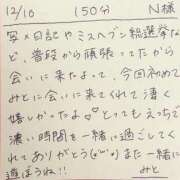 12/10 (150分) N様
写メ日記やミスヘブン総選挙な
ど、普段から頑張ってたから
会いに来たよって、今回初めて
みとに会いに来てくれて凄く
嬉しかったよ♡とてもえっちで
濃い時間を一緒に過ごしてく
れてありがとう(๑'ω'๑)また一緒に
遊ぼうね!! みと